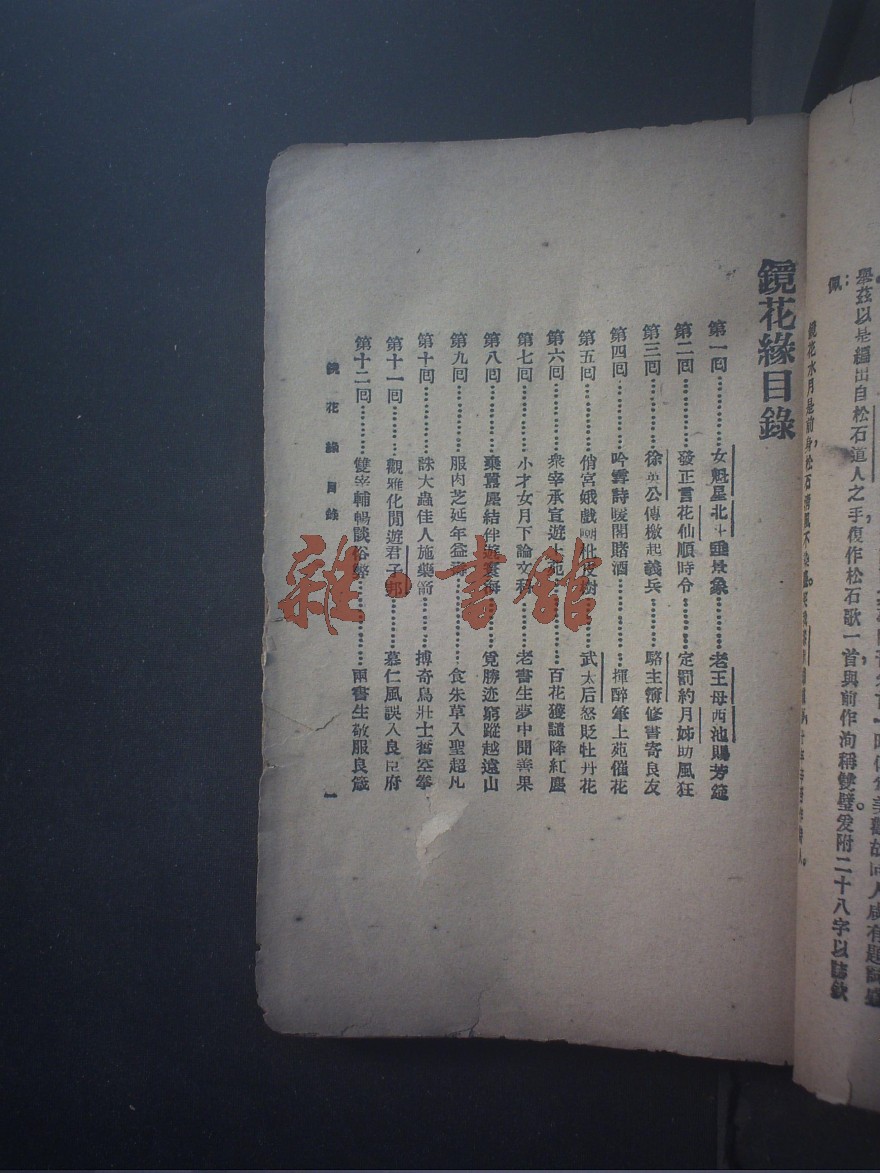 舉茲以是編出自松石道人之手復作松石歌一首與前作洵稱雙璧爰附二十八字以誌欽
佩：
鏡花水月是前身，松石清風不
鏡花緣目錄
第一囘…………女魁星北斗垂景象…………老王母西池賜芳筵
第二囘…………發正言花仙順時令…………定罰約月姊助風狂
第三囘…………徐英公傳檄起義兵…………駱主簿修書寄良友
第四囘…………吟雪詩暖閣賭酒…………揮醉筆上苑催花
第五囘…………俏宮娥戲嘲枇杷樹…………武太后怒貶牡丹花
第六囘…………衆宰承宣遊上苑…………百花獲譴降紅塵
第七囘…………小才女月下論文科…………老書生夢中聞善果
第八囘…………棄囂塵結伴遊寰海…………覓勝迹窮蹤越遠山
第九囘…………服肉芝延年益壽…………食朱草入聖超凡
第十囘…………誅大蟲佳人施藥箭…………搏奇鳥壯士奮空拳
第十一囘…………觀雅化閒遊君子邦…………慕仁風誤入良臣府
第十二囘…………雙宰輔暢談俗弊…………兩書生敬服良箴
鏡花緣目錄
一
雜·書館